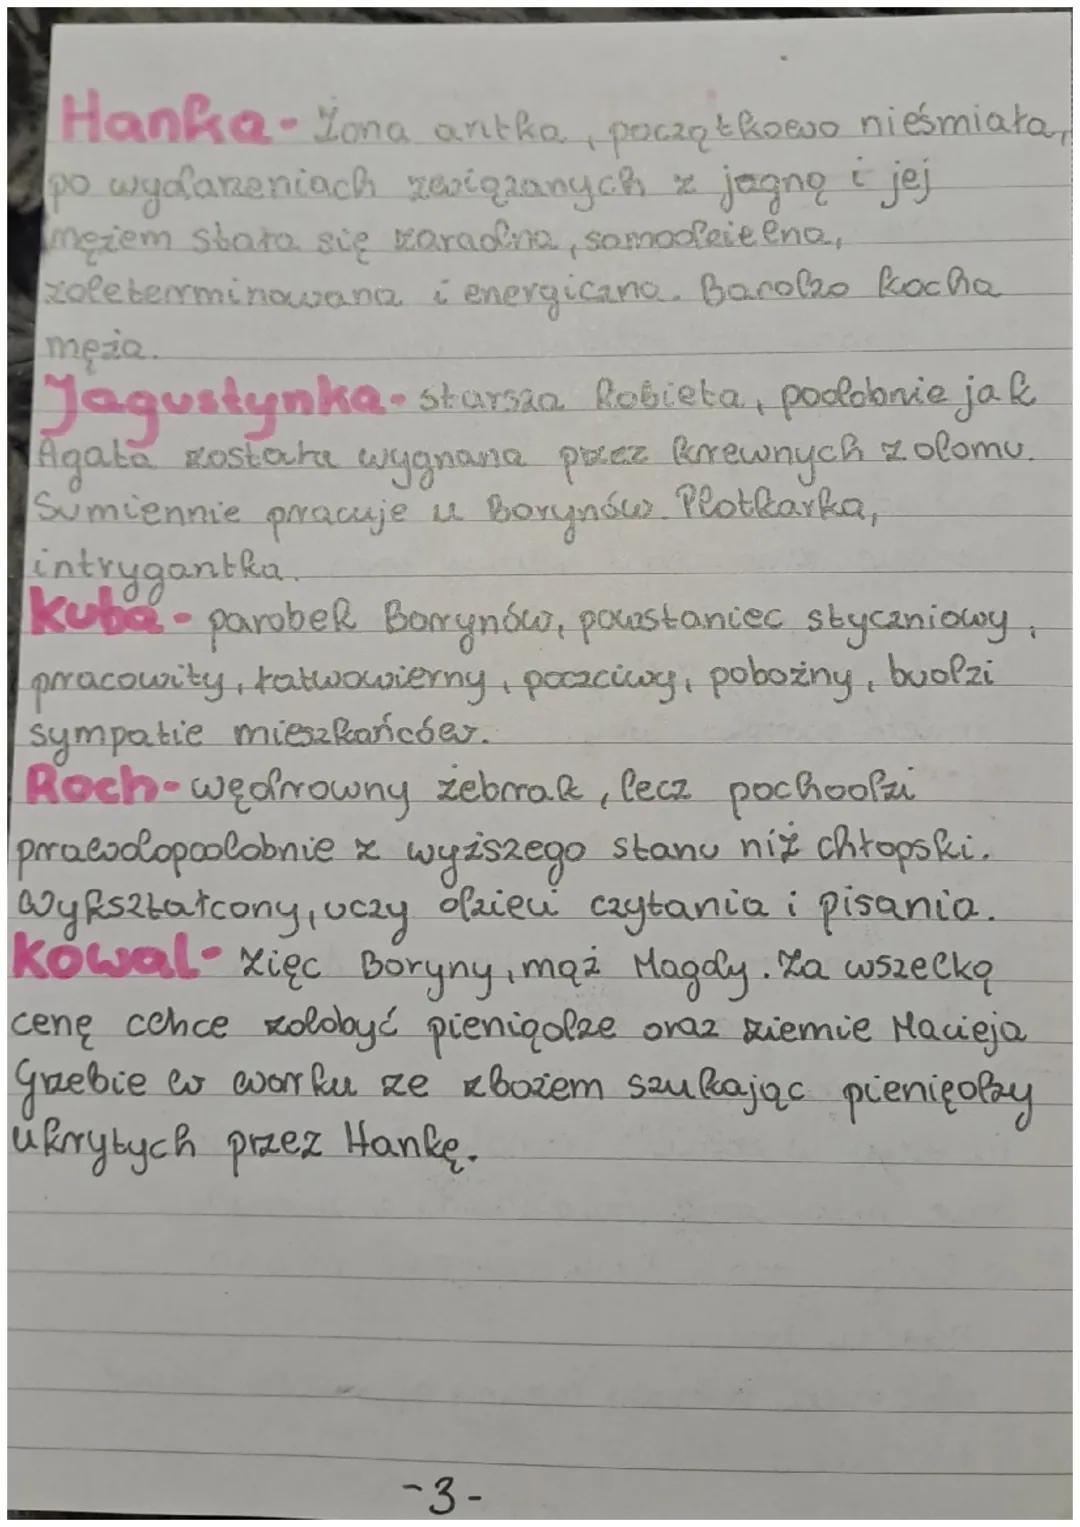 Hanka - Żona antka, początkowo nieśmiała,
po wydarzeniach związanych z jagną i jej
mężem stała się zaradna, samodzielna,
zdeterminowana i energiczna. Bardzo kocha
męża.
Jagustynka - starsza kobieta, podobnie jak
Agata została wygnana przez krewnych z domu.
Sumiennie pracuje u Borynów. Plotkarka,
intrygantka.
Kuba - parobek Borynów, powstaniec styczniowy,
pracowity, łatwowierny, poczciwy, pobożny, budzi
sympatie mieszkańców.
Roch - wędrowny żebrak, lecz pochodzi
prawdopodobnie z wyższego stanu niż chłopski.
Wykształcony, uczy dzieci czytania i pisania.
Kowal - zięc Boryny, mąż Magdy. Za wszelką
cenę cchce zdobyć pieniądze oraz ziemie Macieja
Grzebie w worku ze zbożem szukając pieniędzy
ukrytych przez Hankę.
-3-